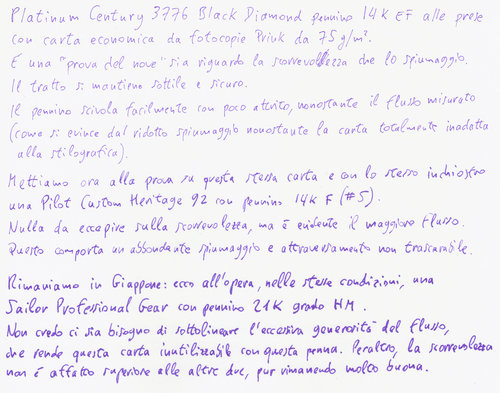 Platinum Century 3776 Black Diamond pennino 14K EF alle prese
con carta economica da fotocopie Priuk da 75 g/m².
È una "prova del nove" sia riguardo la scorrevolezza che lo spiumaggio.
Il tratto si mantiene sottile e sicuro.
Il pennino scivola facilmente con poco attrito, nonostante il flusso misurato
(come si evince dal ridotto spiumaggio nonostante la carta totalmente inadatta
alla stilografica).
Mettiamo ora alla prova su questa stessa carta e con lo stesso inchiostro
una Pilot Custom Heritage 92 con pennino 14K F (#5).
Nulla da eccepire sulla scorrevolezza, ma è evidente il maggiore flusso.
Questo comporta un abbondante spiumaggio e attraversamento non trascurabile.
Rimaniamo in Giappone: ecco all'opera, nelle stesse condizioni, una
Sailor Professional Gear con pennino 21K grado HM.
Non credo ci sia bisogno di sottolineare l'eccessiva generosità del flusso,
che rende questa carta inutilizzabile con questa penna. Peraltro, la scorrevolezza
non è affatto superiore alle altre due, pur rimanendo molto buona.